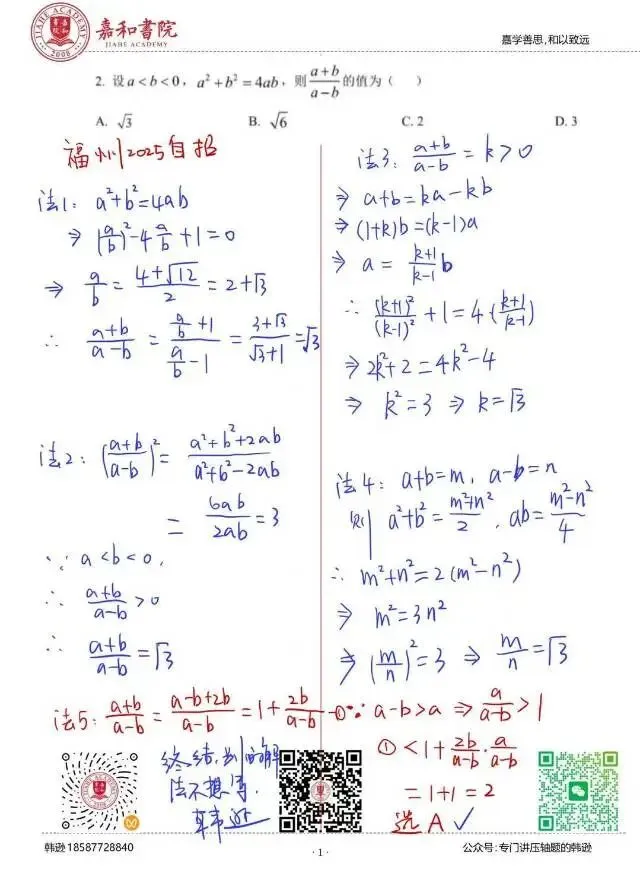 嘉和書院
JIAHE ACADEMY
JIAHE ACADEMY
嘉和書院
2008
嘉学善思,和以致远
2. 设 a < b < 0，a² + b² = 4ab，则 (a+b)/(a−b) 的值为（ ）
A. √3 B. √6 C. 2 D. 3
福州2025自招
法1: a²+b²=4ab
⇒ (a/b)²−4a/b+1=0
⇒ a/b = (4+√12)/2 = 2+√3
∴ (a+b)/(a−b) = (a/b+1)/(a/b−1) = (3+√3)/(√3+1) = √3
法2: ((a+b)/(a−b))² = (a²+b²+2ab)/(a²+b²−2ab)
= 6ab/2ab = 3
∵ a<b<0,
∴ (a+b)/(a−b) > 0
∴ (a+b)/(a−b) = √3
法3: (a+b)/(a−b) = k > 0
⇒ a+b=ka−kb
⇒ (1+k)b=(k−1)a
⇒ a = (k+1)/(k−1) b
∴ (k+1)²/(k−1)² + 1 = 4·((k+1)/(k−1))
⇒ 2k²+2=4k²−4
⇒ k²=3 ⇒ k=√3
法4: a+b=m, a−b=n
则 a²+b²=(m²+n²)/2, ab=(m²−n²)/4
∴ m²+n²=2(m²−n²)
⇒ m²=3n²
⇒ (m/n)²=3 ⇒ m/n=√3
法5: (a+b)/(a−b) = (a−b+2b)/(a−b) = 1+2b/(a−b) −① ∵ a−b>a ⇒ a/(a−b)>1
① <1+2b/(a−b)·a/(a−b)
=1+1=2
选A✓
终结,别的解
法不想写.
韩逊
韩逊 18587728840
· 1 ·
公众号: 专门讲压轴题的韩逊